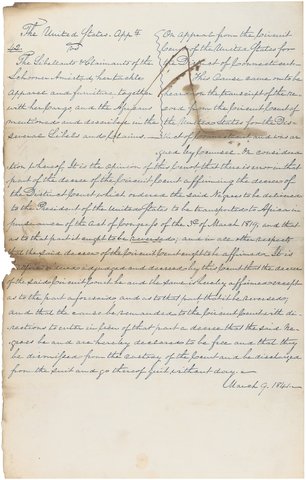 The United States. Appts
42. vs
The Libelants & Claimants of the
Schooner Amistad, her tackle
apparel and furniture, together
with her Cargo and the Africans
mentioned and described in the
several Libels and Claims.
On appeal from the Circuit
Court of the United States for
the District of Connecticut.
This Cause came on to be
heard on the transcript of the re-
cord from the Circuit Court of
the United States for the Dis-
trict of Connecticut and was ar-
gued by Counsel. On considera
tion whereof, It is the opinion of this Court that there is error in that
part of the decree of the Circuit Court affirming the decree of
the District Court which ordered the said Negroes to be delivered
to the President of the United States to be transported to Africa in
pursuance of the Act of Congress of the 3d of March 1819, and that
as to that part it ought to be reversed; and in all other respects
that the said decree of the Circuit Court ought to be affirmed. It is
ordered adjudged and decreed by this Court that the decree
of the said Circuit Court be and the same is hereby affirmed except
as to the part aforesaid and as to that part that it be reversed;
and that the cause be remanded to the Circuit Court with di-
rections to enter in lieu of that part a decree that the said Ne-
groes be and are hereby declared to be free and that they
be dismissed from the custody of the Court and be discharged
from the suit and go thereof quit without day.
March 9. 1841.